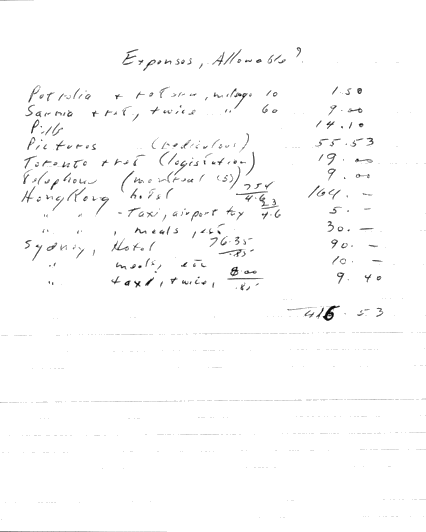 Expenses, Allowable?
Petrolia + return, mileage 10 1.50
Sarnia + ret, twice " 60 9.00
Pills 14.10
Pictures (rediculous) 55.53
Toronto + ret (legislation) 19.00
Telephone (montreal (3)) 9.00
HongKong hotel 754 4.6 164. -
" " - Taxi, airport tax 23 4.6 5. -
" " , meals, etc 30. -
Sydney, Hotel 76.35 .85 90. -
" meals, etc 10. -
" taxi, twice, 8.00 .85 9.40
416.53